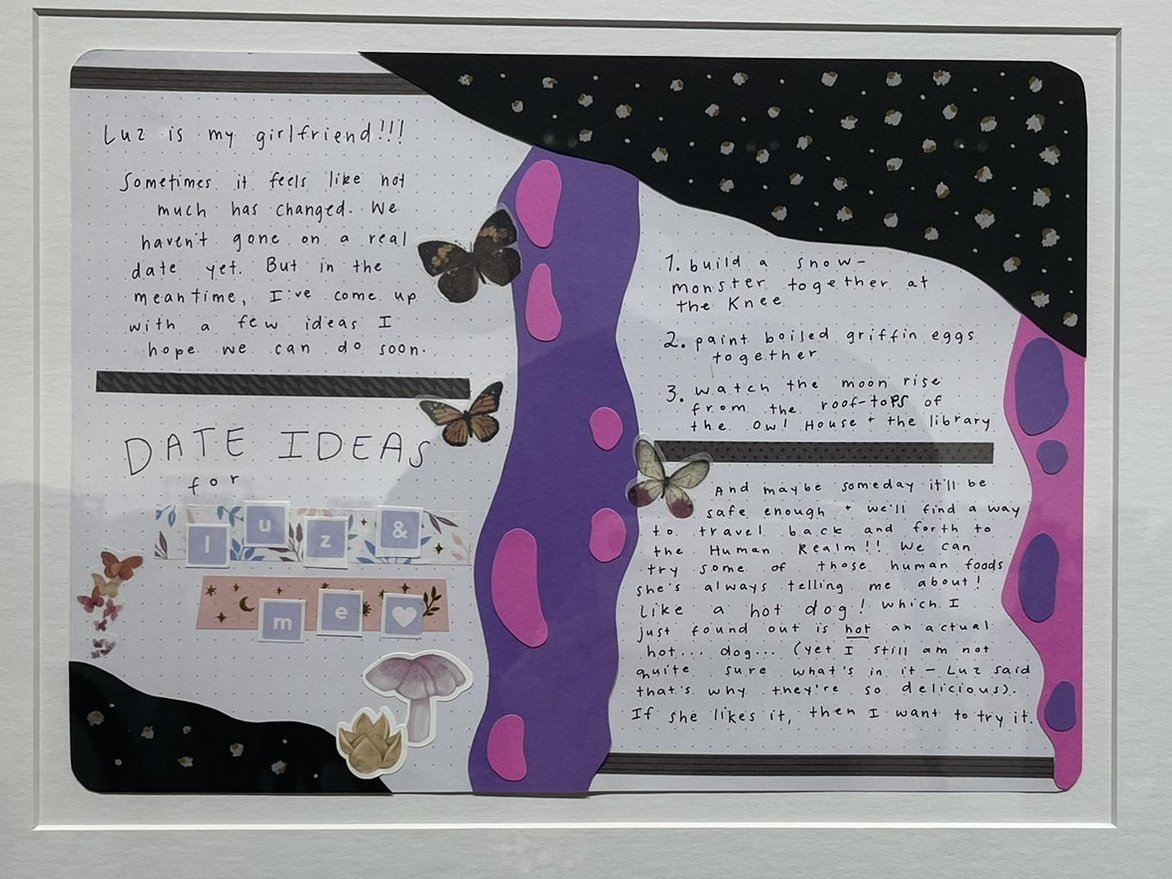 Luz is my girlfriend!!!
Sometimes it feels like not
much has changed. We
haven't gone on a real
date yet. But in the
meantime, I've come up
with a few ideas I
hope we can do soon.
DATE IDEAS
for
luz &
me
1. build a snow-
monster together at
the Knee
2. paint boiled griffin eggs
together
3. watch the moon rise
from the roof-tops of
the Owl House + the library
And maybe someday it'll be
safe enough + we'll find a way
to travel back and forth to
the Human Realm!! We can
try some of those human foods
she's always telling me about!
Like a hot dog! which I
just found out is not an actual
hot... dog... (yet I still am not
quite sure what's in it – Luz said
that's why they're so delicious).
If she likes it, then I want to try it.